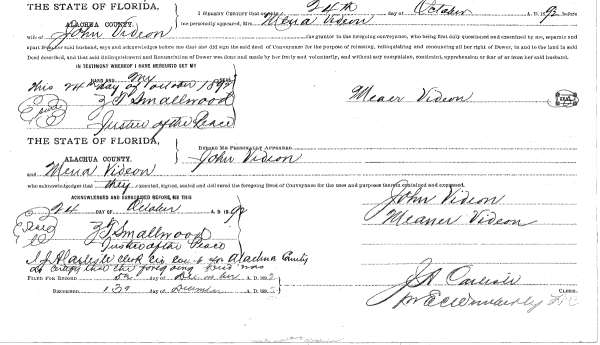 THE STATE OF FLORIDA,
ALACHUA COUNTY.
I HEREBY CERTIFY that on this 24th day of October A. D. 1892 before
me personally appeared, Mrs. Mena Videon
wife of John Videon the grantor in the foregoing conveyance, who being first duly questioned and examined by me, separate and
apart from her said husband, says and acknowledges before me that she did sign the said deed of Conveyance for the purpose of releasing, relinquishing and renouncing all her right of Dower, in and to the land in said
Deed described, and that said Relinquishment and Renunciation of Dower was done and made by her freely and voluntarily, and without any compulsion, constraint, apprehension or fear of or from her said husband.
IN TESTIMONY WHEREOF I HAVE HEREUNTO SET MY
HAND AND my
this 24th day of October 1892
Z T Smallwood
Justice of the Peace
Meaner Videon
SEAL
THE STATE OF FLORIDA,
ALACHUA COUNTY.
BEFORE ME PERSONALLY APPEARED
John Videon
and Mena Videon
who acknowledges that they executed, signed, sealed and delivered the foregoing Deed of Conveyance for the uses and purposes therein contained and expressed.
ACKNOWLEDGED AND SUBSCRIBED BEFORE ME THIS
24 DAY OF October A. D. 1892
John Videon
Meaner Videon
Z T Smallwood
Justice of the Peace
I J A Carlisle clerk cir court for Alachua County
do certify that the foregoing Deed was
FILED FOR RECORD day of December A. D. 189
RECORDED 13 day of December A. D. 189
J A Carlisle
CLERK.
D C